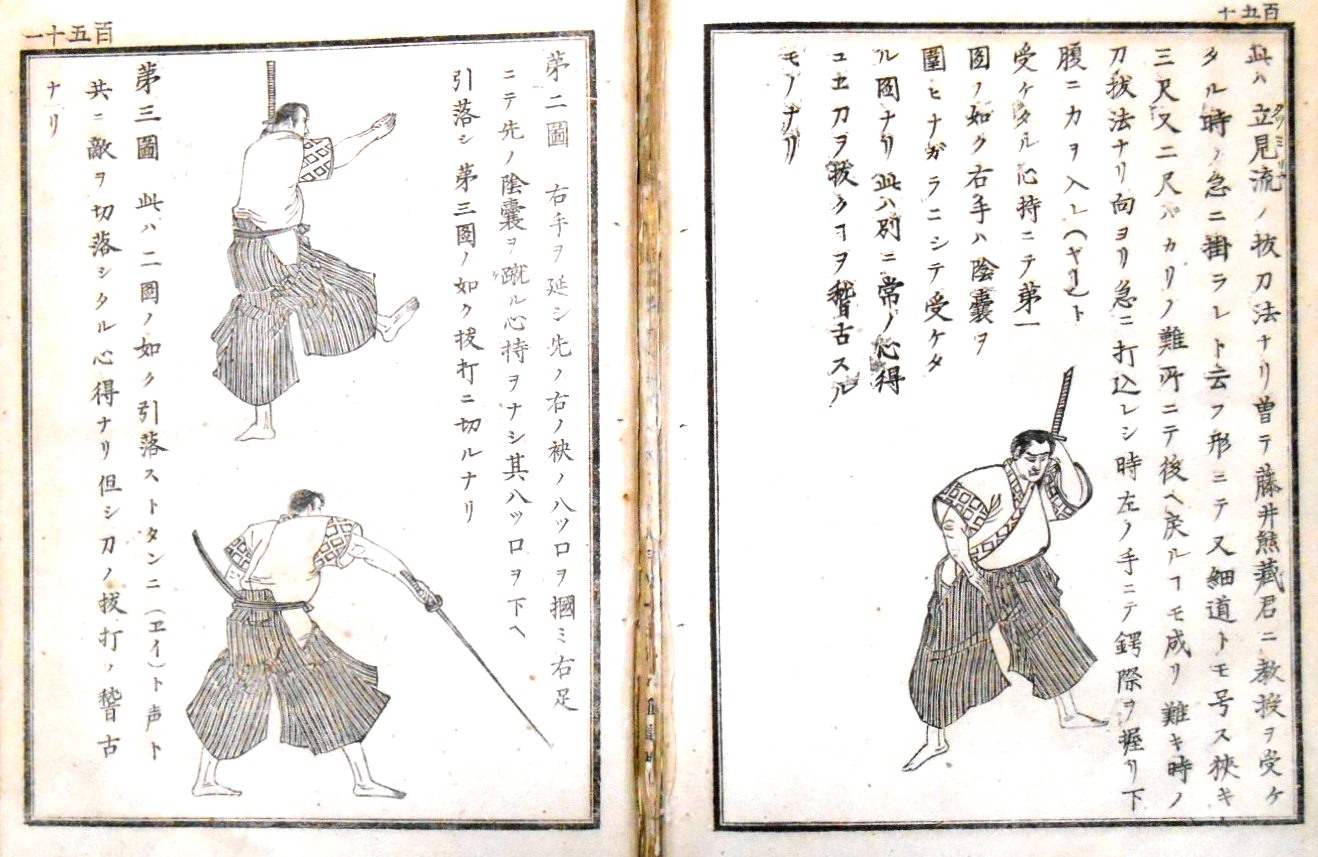 百五十
此ハ立見流ノ抜刀法ナリ曽テ藤井熊蔵君ニ教授ヲ受ケ
タル時ノ急ニ掛ラレト云フ形ニテ又細道トモ号ス狹キ
三尺又二尺バカリノ難所ニテ後ヘ戻ルヿモ成リ難キ時ノ
刀拔法ナリ向ヨリ急ニ打込レシ時左ノ手ニテ鍔際ヲ握リ下
腹ニ力ヲ入レ(ヤリ)ト
受ケタル心持ニテ第一
圖ノ如ク右手ハ陰囊ヲ
圍ヒナガラニシテ受ケタ
ル圖ナリ此ハ別ニ常ノ心得
ユエ刀ヲ拔クヿヲ稽古スル
モノナリ
百五十一
第二圖 右手ヲ延シ先ノ右ノ袂ノ八ツ口ヲ摑ミ右足
ニテ先ノ陰囊ヲ蹴ル心持ヲナシ其八ツ口ヲ下ヘ
引落シ第三圖ノ如ク拔打ニ切ルナリ
第三圖 此ハ二圖ノ如ク引落ストタンニ(エイ)ト声ト
共ニ敵ヲ切落シタル心得ナリ但シ刀ノ拔打ノ稽古
ナリ